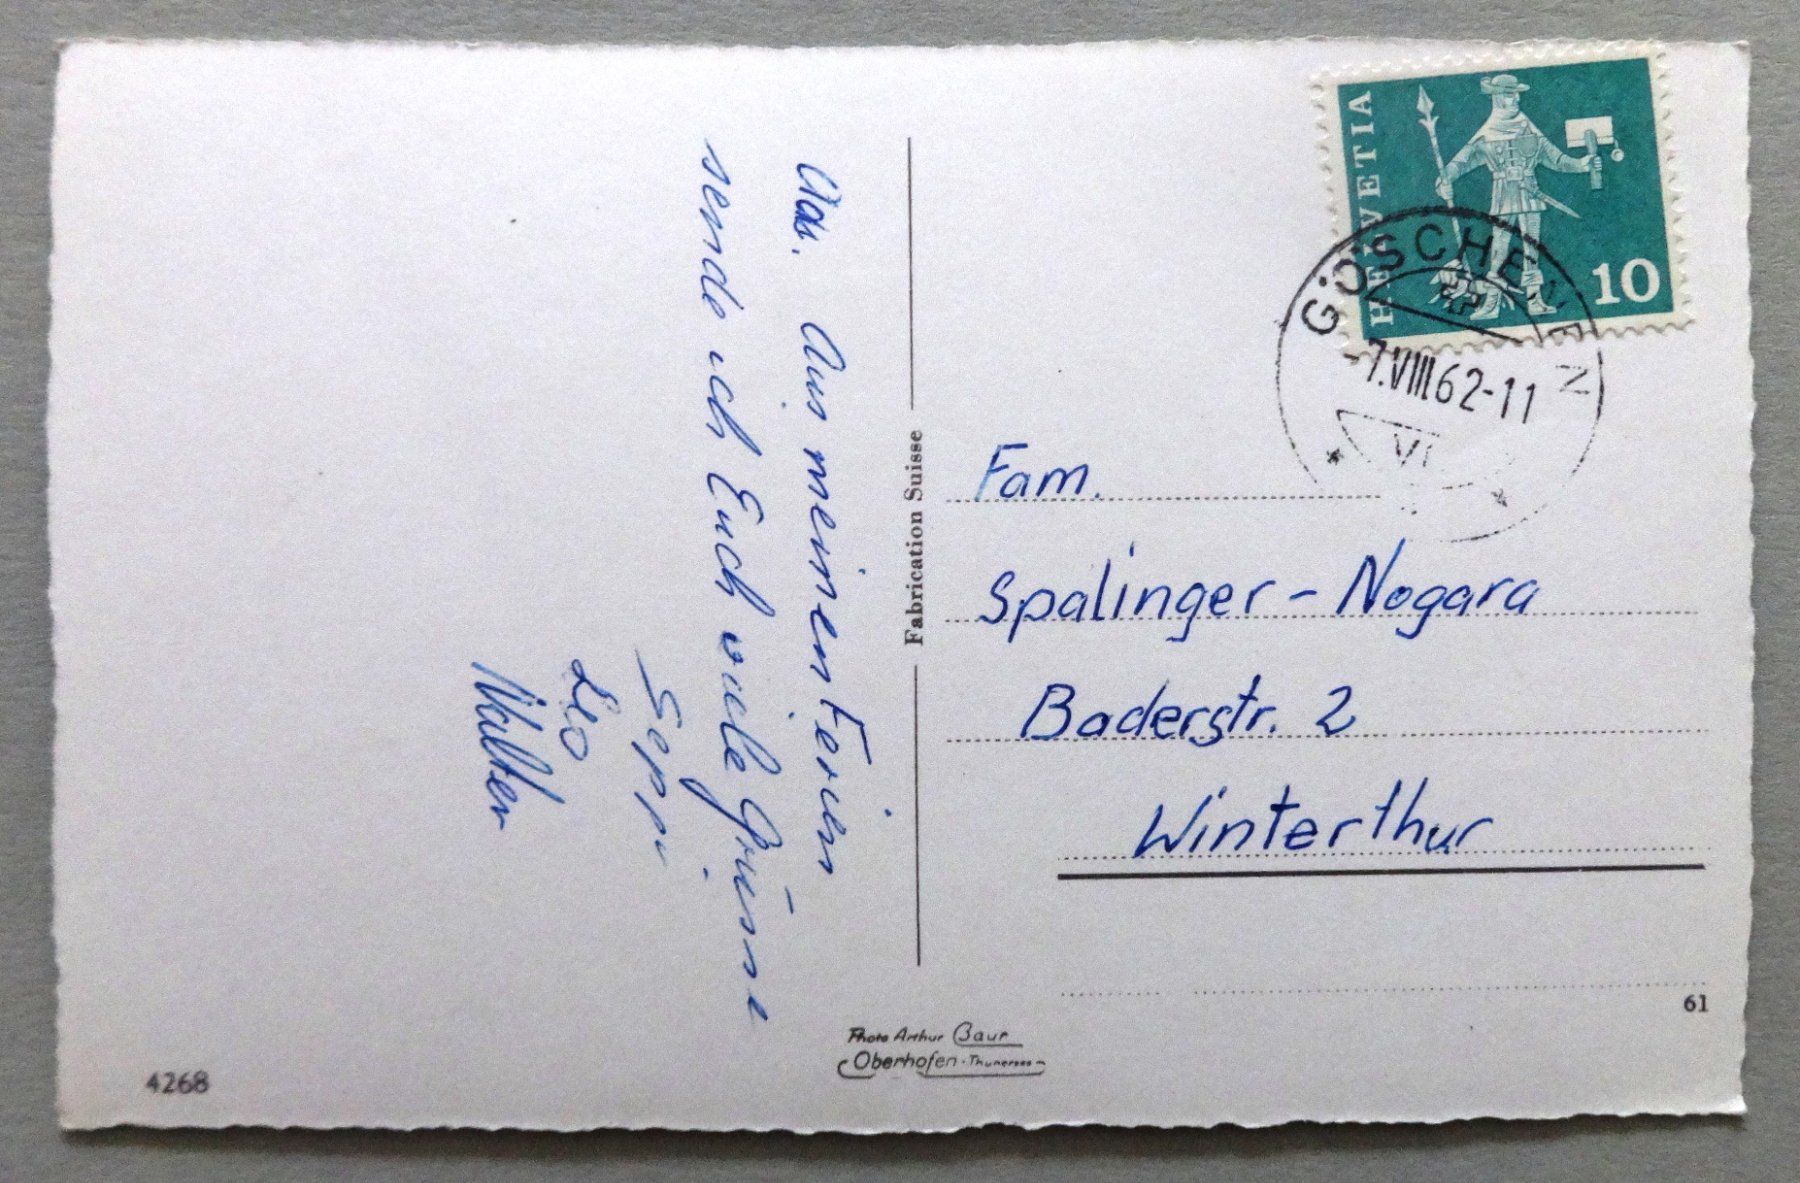 Aus meinen Ferien
sende ich Euch viele Grüsse
Seppi
Leo
Walter
Fabrication Suisse
HELVETIA
10
GÖSCHENEN
-7.VIII.62-11
Fam.
Spalinger - Nogara
Baderstr. 2
Winterthur
61
Photo Arthur Baur
Oberhofen - Thunersee
4268